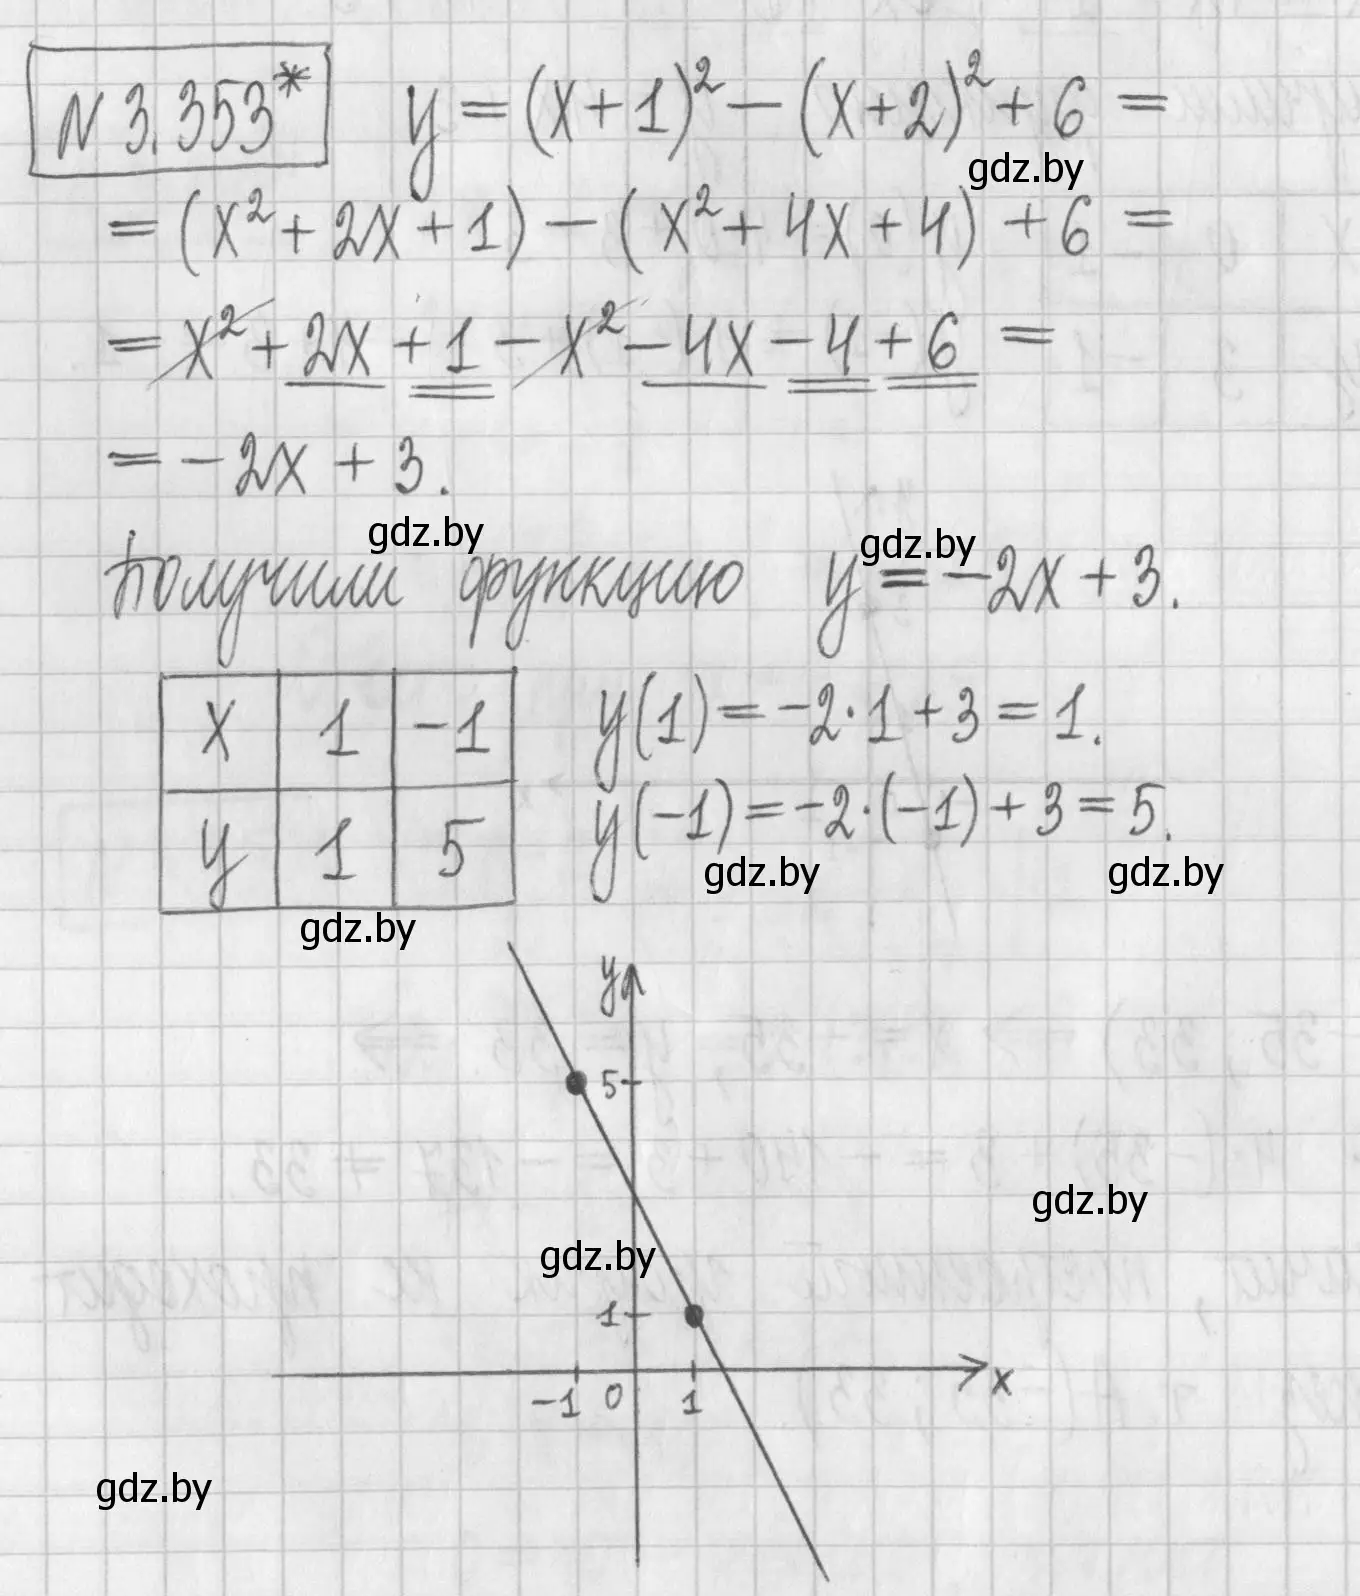 N 3.353* y = (x+1)² − (x+2)² + 6 =
gdz.by
= (x² + 2x + 1) − (x² + 4x + 4) + 6 =
= x² + 2x + 1 − x² − 4x − 4 + 6 =
= −2x + 3.
gdz.by gdz.by
Получили функцию y = −2x + 3.
x 1 −1 y(1) = −2·1 + 3 = 1.
y 1 5 y(−1) = −2·(−1) + 3 = 5.
gdz.by gdz.by
gdz.by
y
5
gdz.by
gdz.by
1
x
−1 0 1
gdz.by